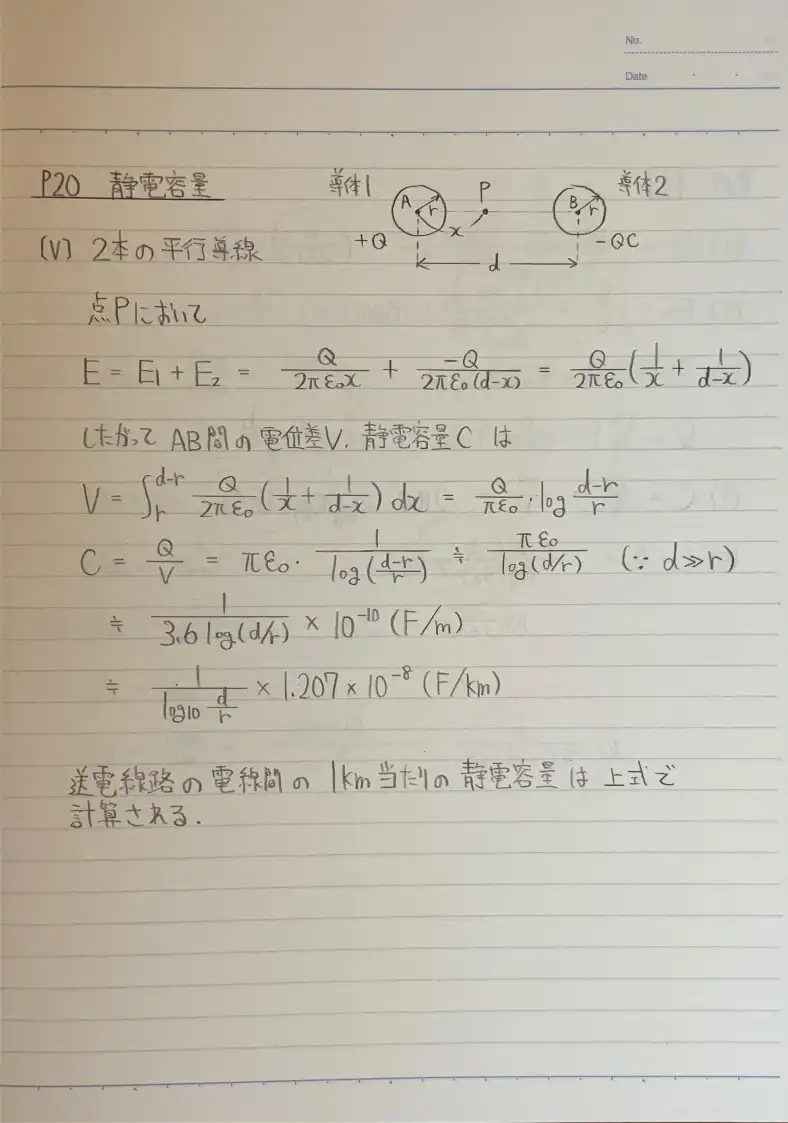 No.
Date
P20 静電容量
導体1 P 導体2
A r B r
x
+Q -QC
d
(V) 2本の平行導線
点Pにおいて
E = E₁ + E₂ = Q/2πε₀x + -Q/2πε₀(d-x) = Q/2πε₀ (1/x + 1/d-x)
したがって AB間の電位差V. 静電容量C は
V = ∫_r^{d-r} Q/2πε₀ (1/x + 1/d-x) dx = Q/πε₀ · log d-r/r
C = Q/V = πε₀ · 1/log(d-r/r) ≒ πε₀/log(d/r) (∵ d≫r)
≒ 1/3.6 log(d/r) × 10⁻¹⁰ (F/m)
≒ 1/log10 d/r × 1.207 × 10⁻⁸ (F/km)
送電線路の電線間の 1km当たりの静電容量は上式で
計算される.